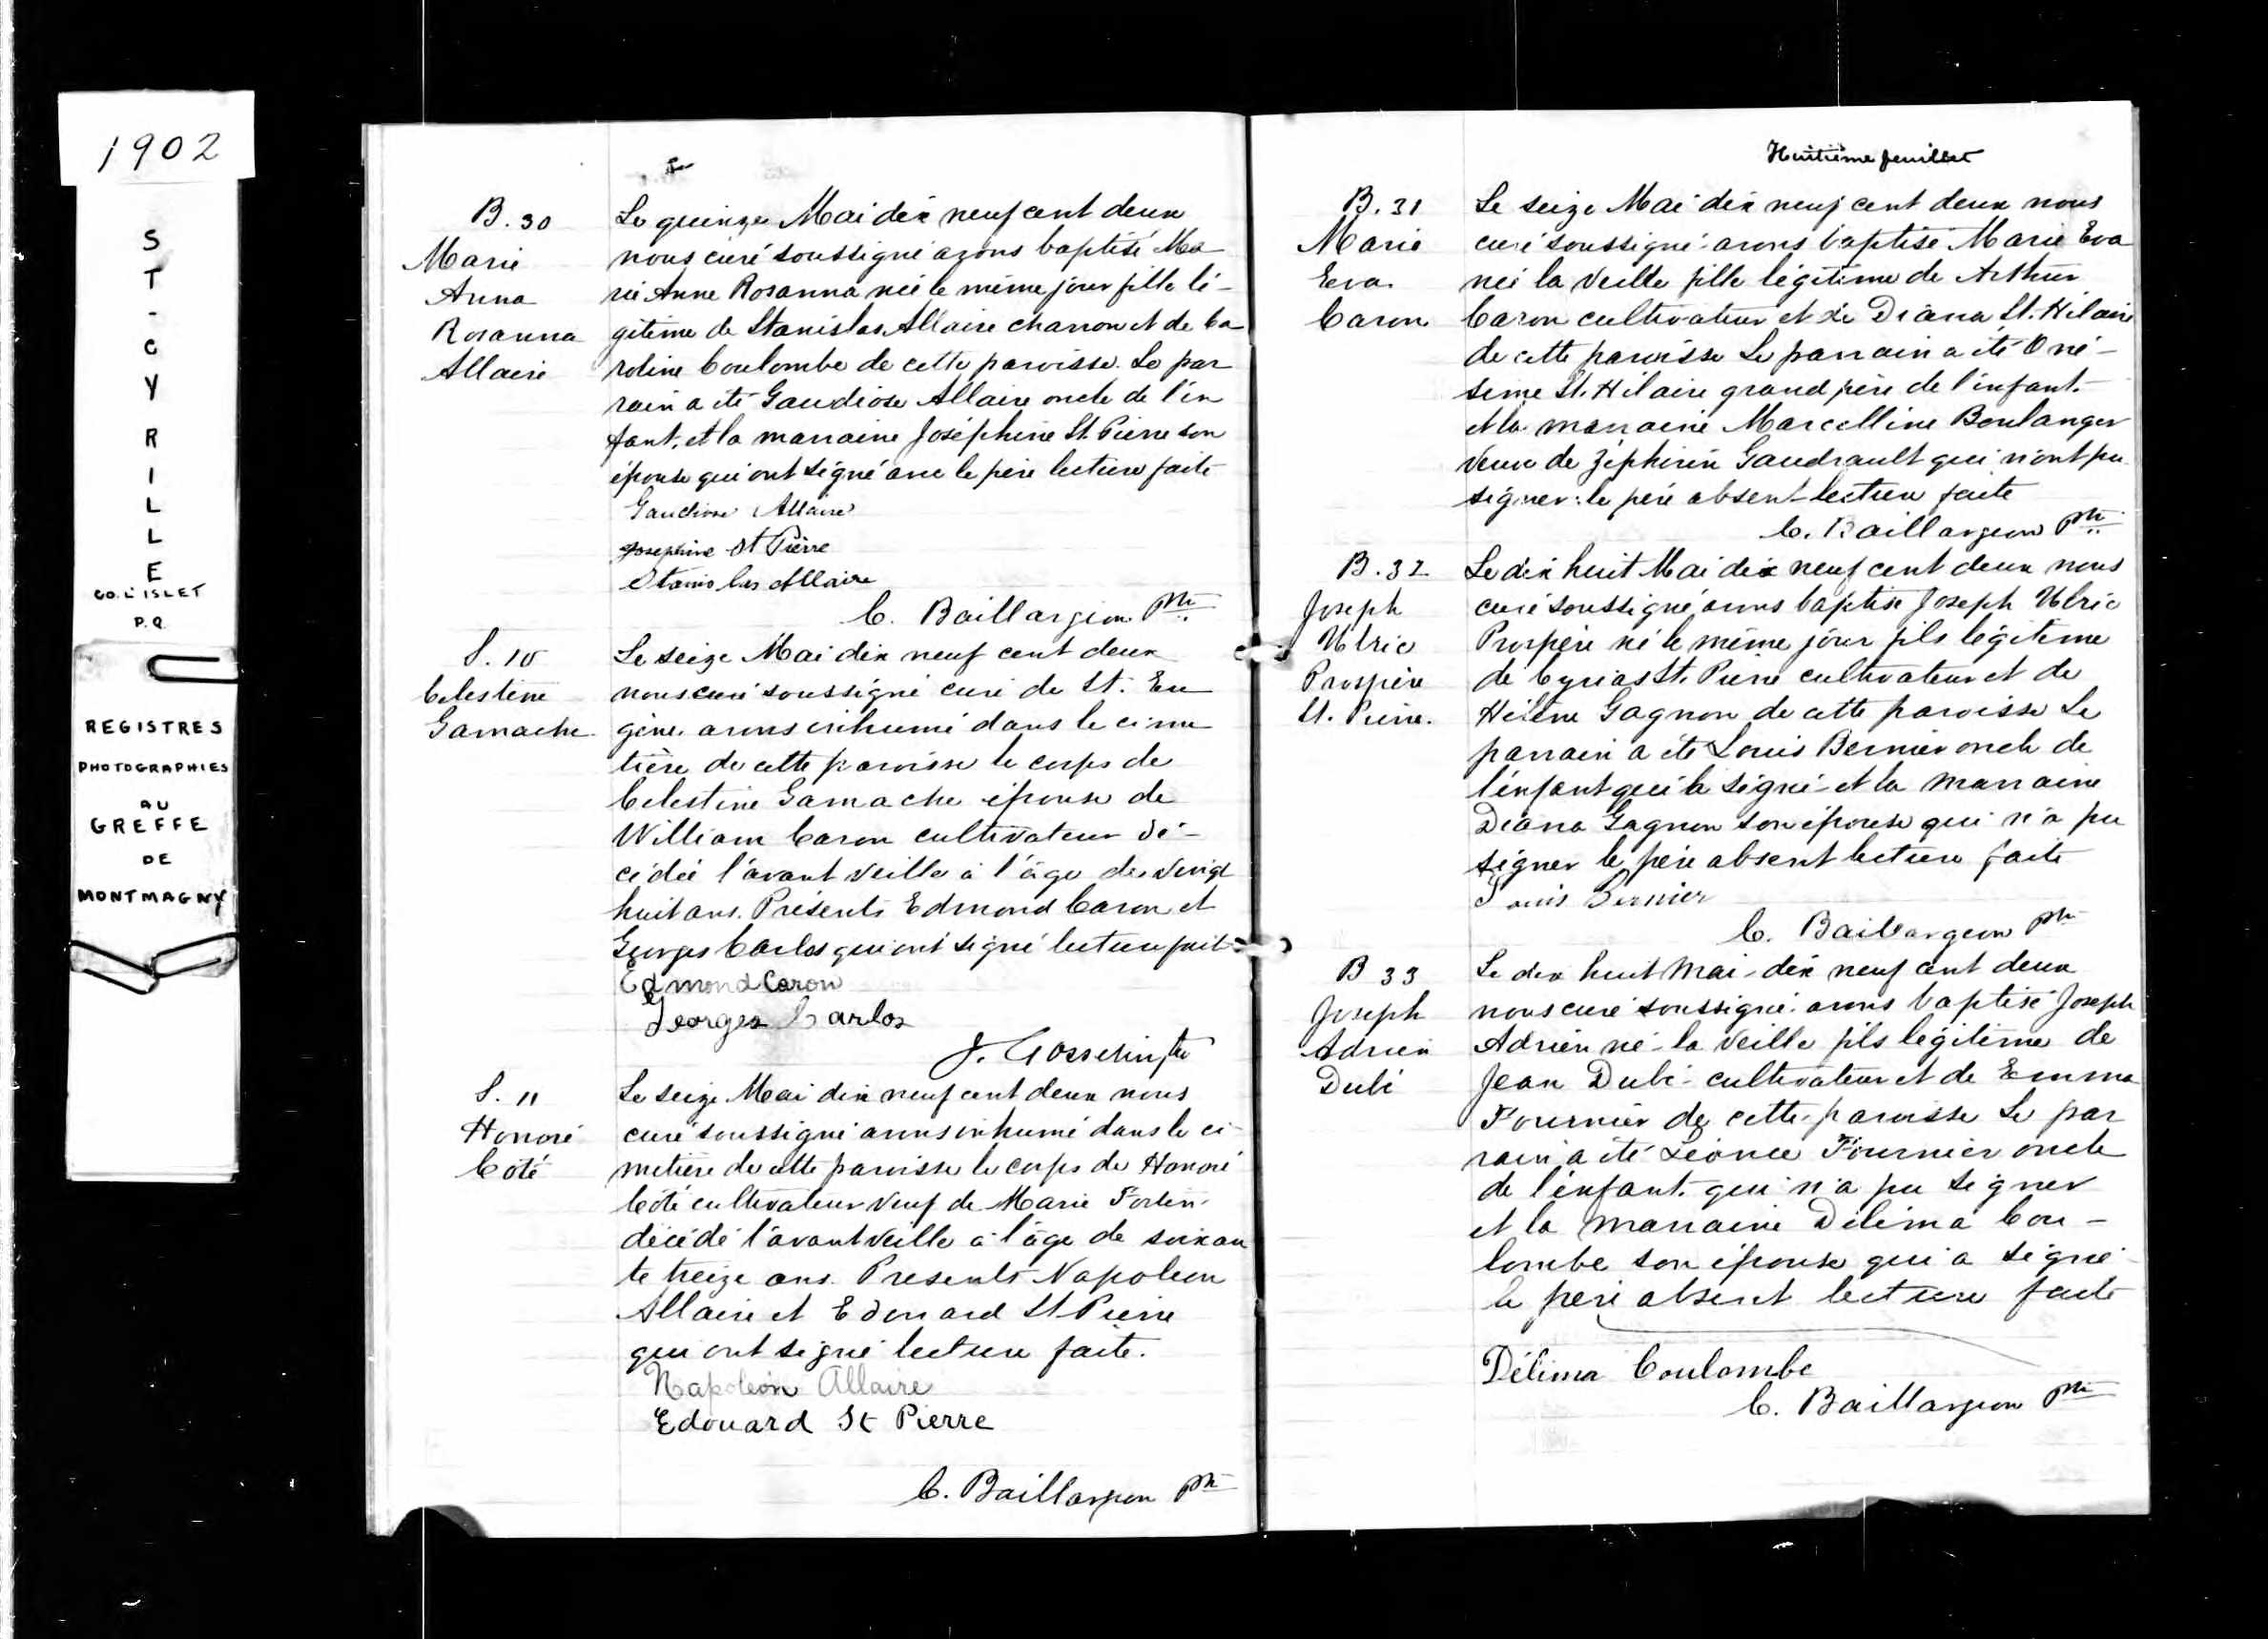 1902
ST-CYRILLE
CO. L'ISLET
P.Q.
REGISTRES
PHOTOGRAPHIES
AU
GREFFE
DE
MONTMAGNY
B. 30
Marie
Anna
Rosanna
Allaire
Le quinze Mai dix neuf cent deux
nous curé soussigné avons baptisé Ma
rie Anne Rosanna née le même jour fille lé-
gitime de Stanislas Allaire charron et de Ca
roline Coulombe de cette paroisse. Le par
rain a été Gaudiose Allaire oncle de l'en
fant, et la marraine Joséphine St. Pierre son
épouse qui ont signé avec le père lecture faite
Gaudiose Allaire
Josephine St Pierre
Stanislas Allaire
C. Baillargeon Ptre
S. 10
Celestine
Gamache
Le seize Mai dix neuf cent deux
nous curé soussigné curé de St. Eu
gène avons inhumé dans le cime
tière de cette paroisse le corps de
Celestine Gamache épouse de
William Caron cultivateur dé-
cédée l'avant veille à l'âge de vingt
huit ans. Présents Edmond Caron et
Georges Carlos qui ont signé lecture faite
Edmond Caron
Georges Carlos
J. Gosselin ptre
S. 11
Honoré
Côté
Le seize Mai dix neuf cent deux nous
curé soussigné avons inhumé dans le ci-
metière de cette paroisse le corps de Honoré
Côté cultivateur veuf de Marie Fortin
décédé l'avant veille à l'âge de soixan
te treize ans. Presents Napoleon
Allaire et Edouard St Pierre
qui ont signé lecture faite.
Napoléon Allaire
Edouard St Pierre
C. Baillargeon Ptre
Huitième feuillet
B. 31
Marie
Eva
Caron
Le seize Mai dix neuf cent deux nous
curé soussigné avons baptisé Marie Eva
née la veille fille légitime de Arthur
Caron cultivateur et de Diana St. Hilaire
de cette paroisse Le parrain a été Oné-
sime St. Hilaire grand père de l'enfant
et la marraine Marcelline Boulanger
veuve de Zéphirin Gaudrault qui n'ont pu
signer le père absent lecture faite
C. Baillargeon Ptre
B. 32
Joseph
Ulric
Prospère
St. Pierre.
Le dix huit Mai dix neuf cent deux nous
curé soussigné avons baptisé Joseph Ulric
Prospère né le même jour fils légitime
de Cyrias St. Pierre cultivateur et de
Hélène Gagnon de cette paroisse Le
parrain a été Louis Bernier oncle de
l'enfant qui a signé et la marraine
Diana Gagnon son épouse qui n'a pu
signer le père absent lecture faite
Louis Bernier
C. Baillargeon Ptre
B 33
Joseph
Adrien
Dubé
Le dix huit Mai dix neuf cent deux
nous curé soussigné avons baptisé Joseph
Adrien né la veille fils légitime de
Jean Dubé cultivateur et de Emma
Fournier de cette paroisse Le par
rain a été Léonce Fournier oncle
de l'enfant qui n'a pu signer
et la marraine Délima Cou-
lombe son épouse qui a signé
le père absent lecture faite
Délima Coulombe
C. Baillargeon Ptre